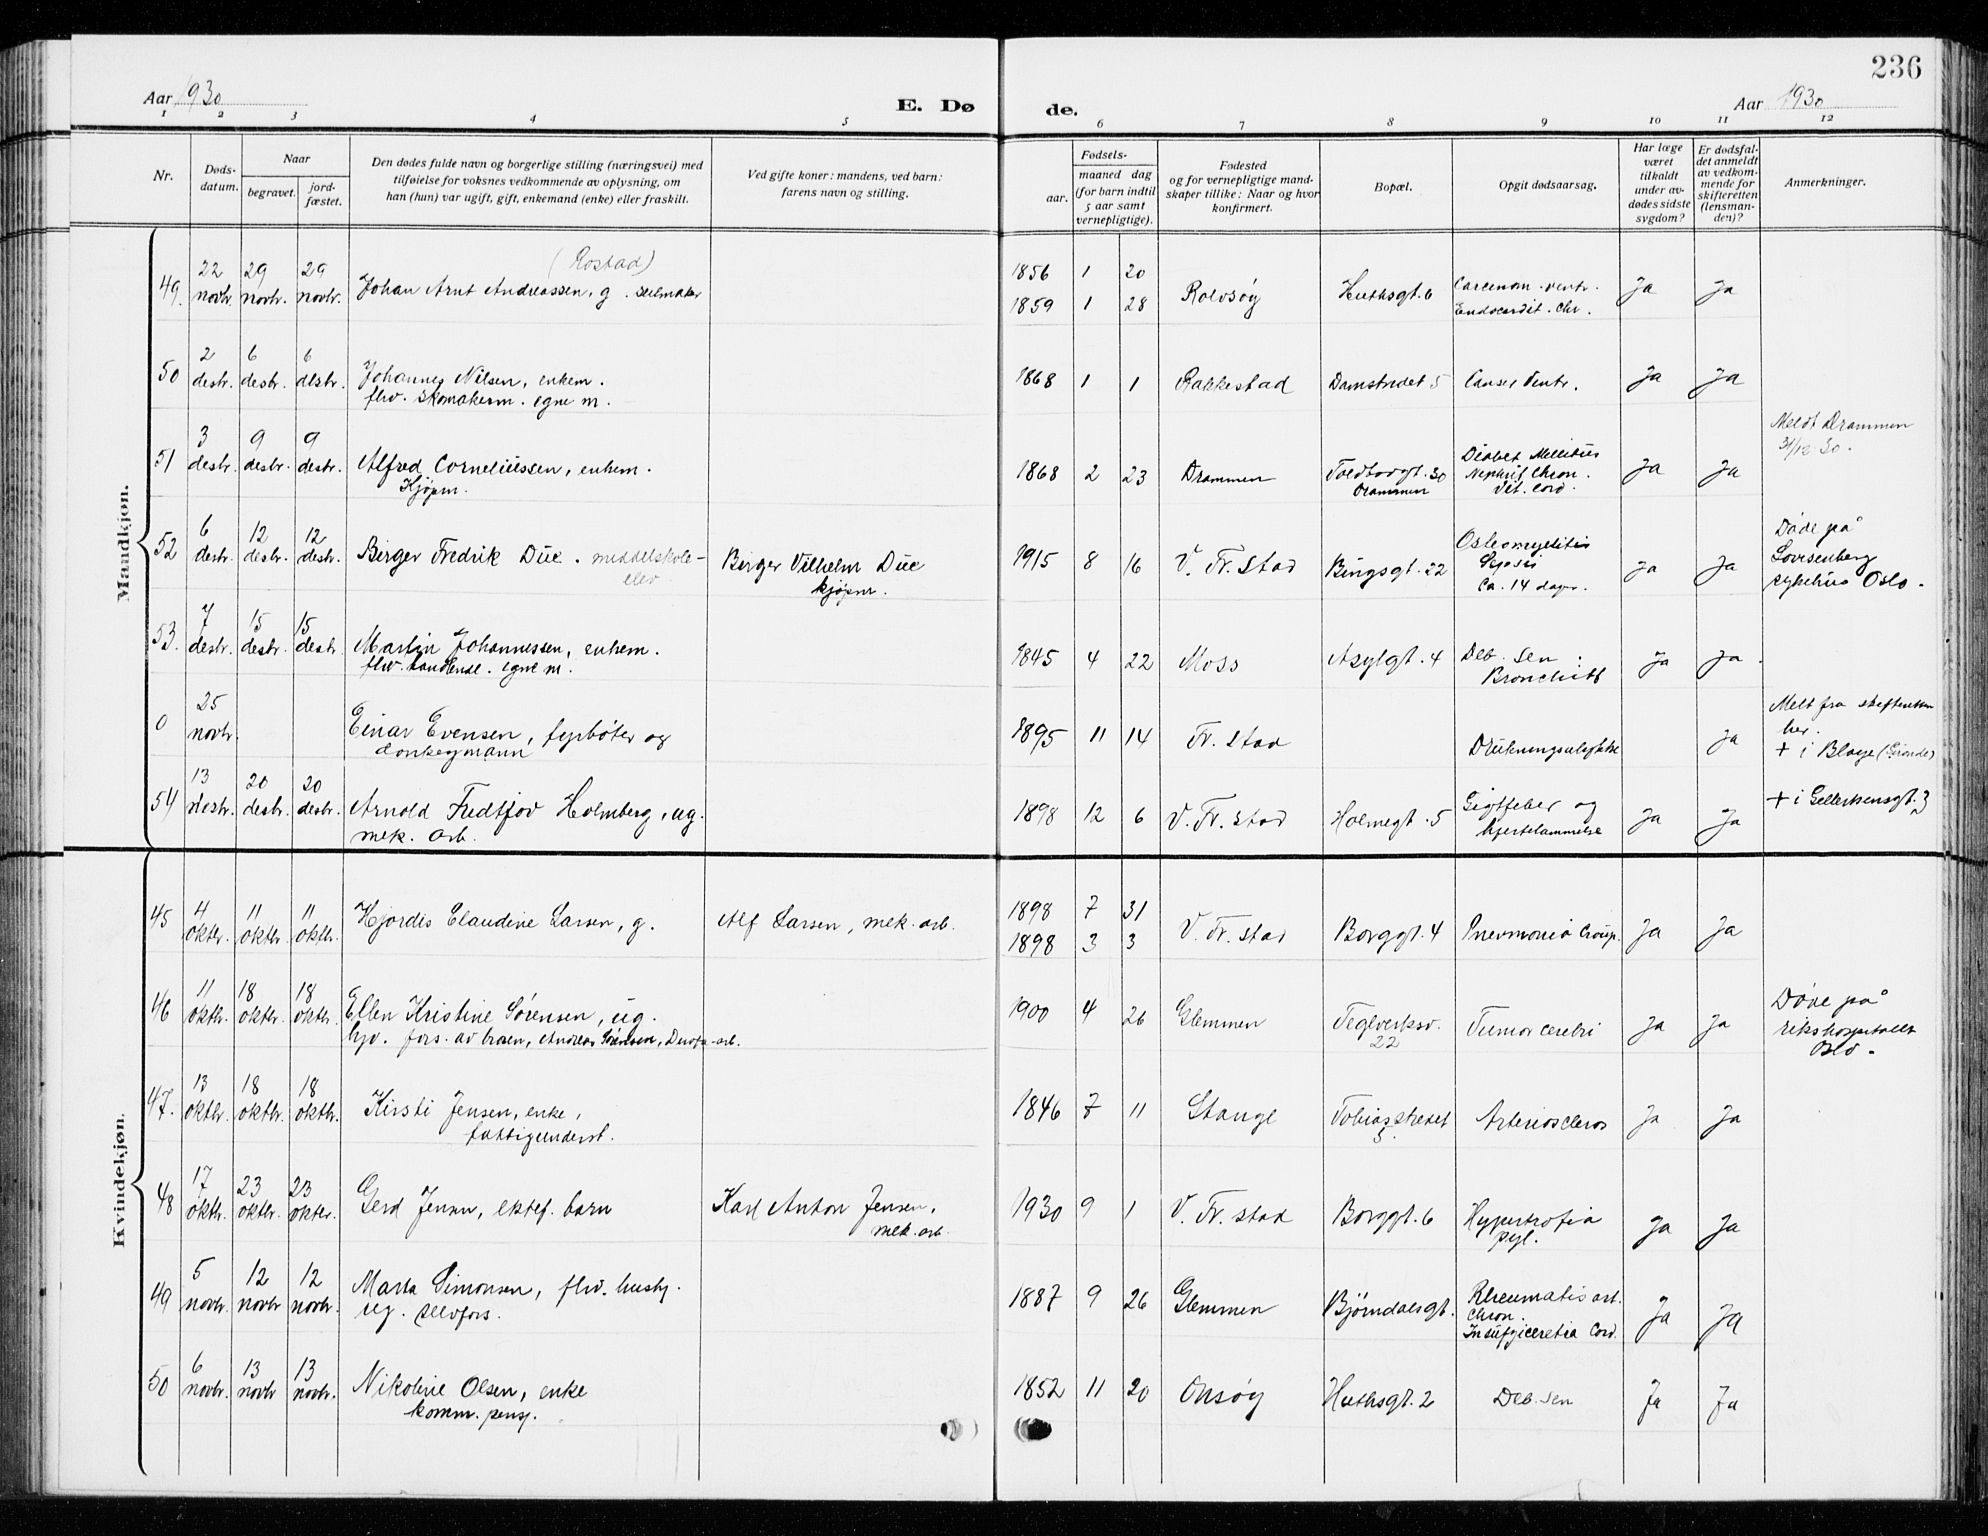 236
Aar 1930
E. Dø
de.
Aar 1930
1 2 3 4 5 6 7 8 9 10 11 12
Nr.
Døds-
datum.
Naar
begravet.
jord-
fæstet.
Den dødes fulde navn og borgerlige stilling (næringsvei) med
tilføielse for voksnes vedkommende av oplysning, om
han (hun) var ugift, gift, enkemand (enke) eller fraskilt.
Ved gifte koner: mandens, ved barn:
farens navn og stilling.
Fødsels-
aar.
maaned dag
(for barn indtil
5 aar samt
vernepligtige).
Fødested
og for vernepligtige mand-
skaper tillike: Naar og hvor
konfirmert.
Bopæl.
Opgit dødsaarsag.
Har læge
været
tilkaldt
under av-
dødes sidste
sygdom?
Er dødsfal-
det anmeldt
av vedkom-
mende for
skifteretten
(lensman-
den)?
Anmerkninger.
Mandkjøn.
(Rostad)
22 29 29 1856 1 20
49. novbr. novbr. novbr. Johan Arnt Andreassen, g. seilmaker Rolvsøy Huthsgt. 6 Carcinom. ventr. Ja Ja
1859 1 28 Endocardit. Chr.
2 6 6
50 desbr. desbr. desbr. Johannes Nilsen, enkem. 1868 1 1 Rakkestad Damstredet 5 Canser Ventr. Ja Ja
fhv. skomakerm. egne m.
3 9 9 Meldt Drammen
31/12 30.
51 desbr. desbr. desbr. Alfred Corneliussen, enkem. 1868 2 23 Drammen Toldbodgt. 30 Diabet Mellitus Ja Ja
Kjøpm. Drammen Nephrit Chron.
Vit. Cord.
6 12 12 Døde på
52 desbr. desbr. desbr. Birger Fredrik Due. middelskole- Birger Vilhelm Due 1915 8 16 V. Fr. Stad Bingsgt. 22 Osteomyelitis Ja Ja Lovisenberg
elev kjøpm. Sepsis sykehus Oslo.
Ca. 14 dager.
7 15 15
53. desbr. desbr. desbr. Martin Johannessen, enkem. 1845 4 22 Moss Asylgt. 4 Deb. sen. Ja Ja.
fhv. handlende. egne m. Bronchitt
25 Melt fra skifteretten
0 novbr. Einar Evensen, fyrbøter og 1895 11 14 Fr. Stad Drukningsulykke Ja her.
donkeymann + i Blaye (Gironde)
13 20 20
54 desbr. desbr. desbr. Arnold Fridtjov Holmberg, ug. 1898 12 6 V. Fr. Stad Holmegt. 5 Gigtfeber og Ja Ja + i Gellertsensgt. 3
mek. arb. hjertelammelse
Kvindekjøn.
4 11 11 1898 7 31
45 oktbr. oktbr. oktbr. Hjordis Claudine Larsen, g. Alf Larsen, mek. arb. V. Fr. stad Borggt. 4 Pnevmonia Croup. Ja Ja
1898 3 3
11 18 18 Døde på
46 oktbr. oktbr. oktbr. Ellen Kristine Sørensen, ug. 1900 4 26 Glemmen Teglverksv. Tumor cerebri Ja Ja rikshospitalet
hjv. fors. av broren, Andreas Sørensen, -arb. 22 Oslo.
13 18 18
47. oktbr. oktbr. oktbr. Kirsti Jensen, enke, 1846 7 11 Stange Tobiasstredet Arterioscleros Ja Ja
fattigunderst. 5.
17 23 23
48 oktbr. oktbr. oktbr. Gerd Jensen, ektef. barn Karl Anton Jensen, 1930 9 1 V. Fr. stad Borggt. 6 Hypertrofia Ja Ja
mek. arb. pyl.
5 12 12
49 novbr. novbr novbr. Marta Simonsen, fhv. hushj. 1887 9 26 Glemmen Bjørndalsgt. Rheumatis art. Ja Ja
ug. selvfors. Chron.
Insufficientia Cord.
6 13 13
50 novbr. novbr novbr. Nikoline Olsen, enke 1852 11 20 Onsøy Huthsgt. 2 Deb. sen Ja Ja
komm. pensj.